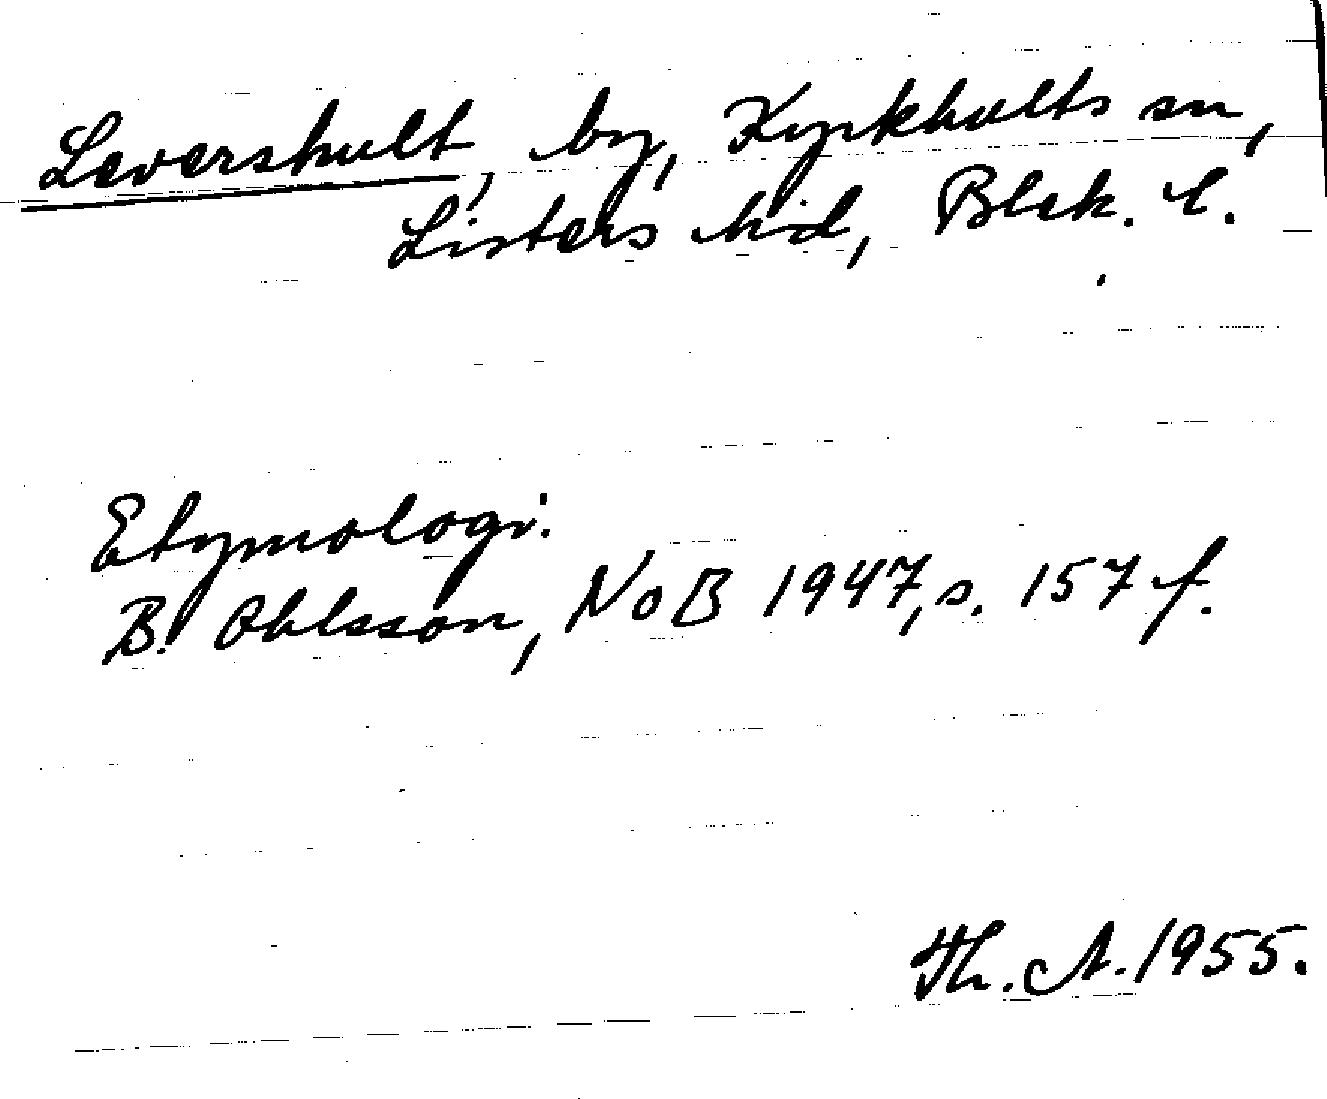 Levershult, by, Kyrkhults sn,
Listers hd, Blek. l.
Etymologi:
B. Ohlsson, NoB 1947, s. 157 f.
Th. A. 1955.